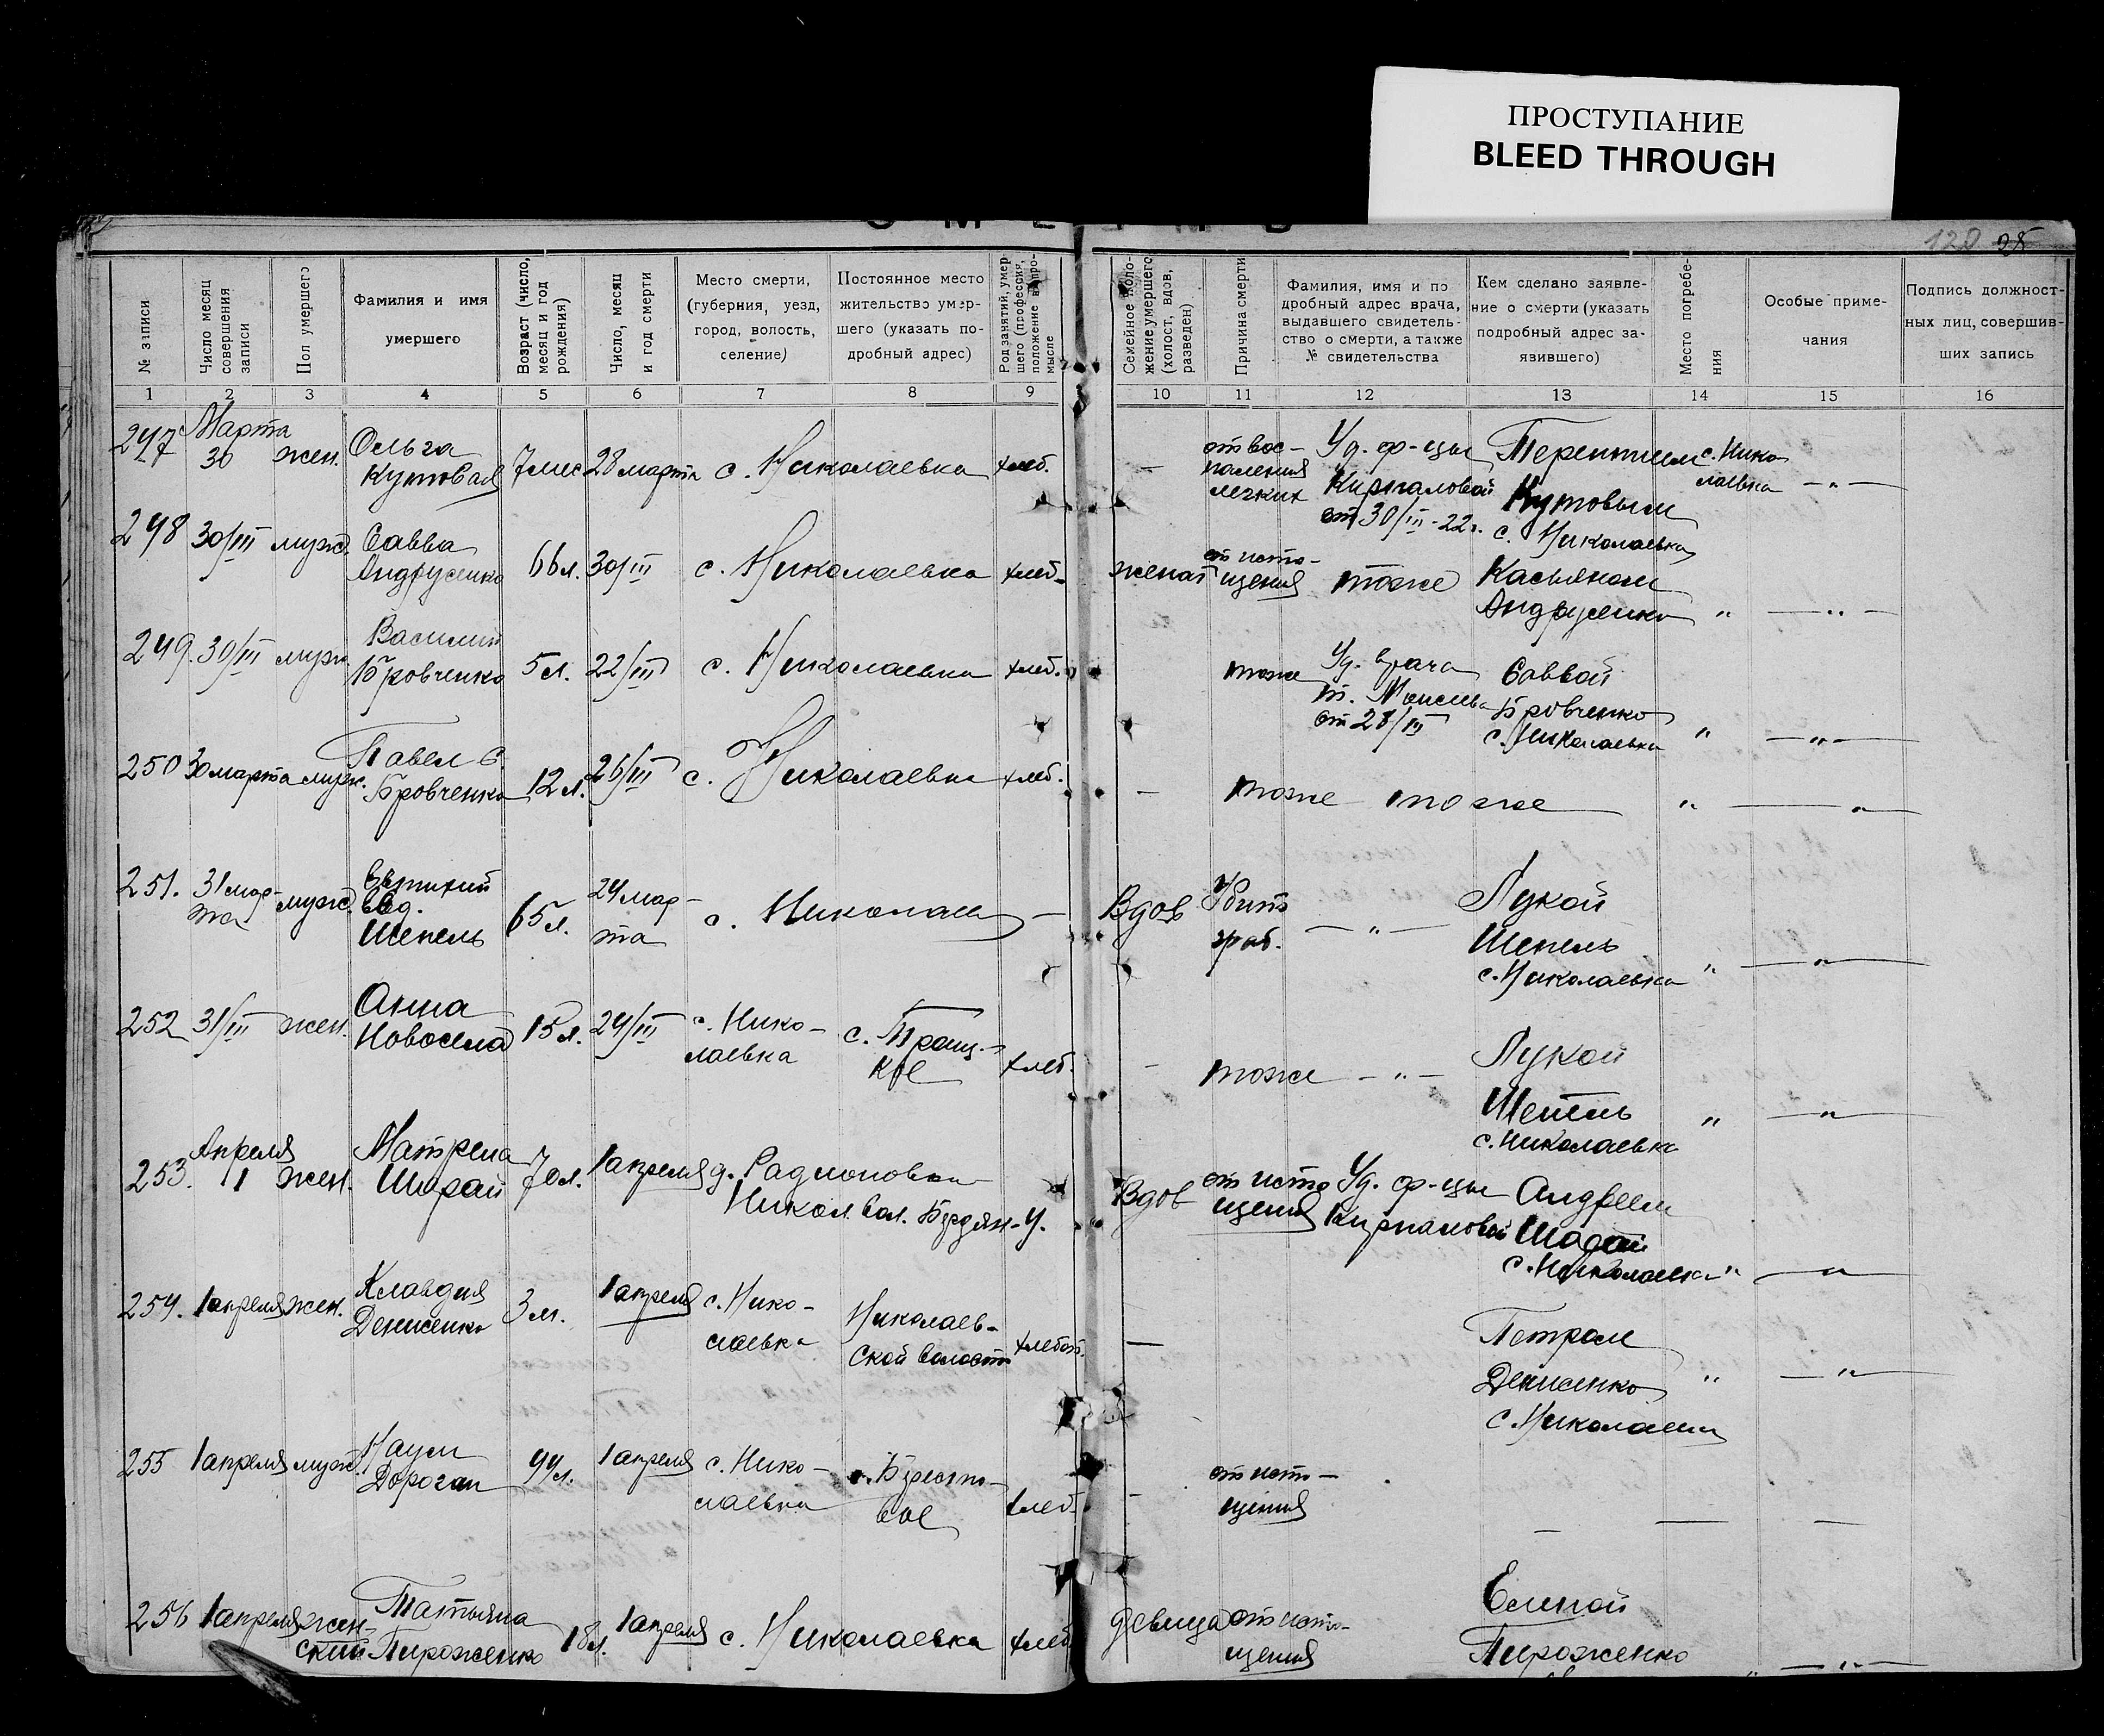 ПРОСТУПАНИЕ
BLEED THROUGH
120 95
№ записи
Число месяц совершения записи
Пол умершего
Фамилия и имя
умершего
Возраст (число, месяц и год рождения)
Число, месяц и год смерти
Место смерти,
(губерния, уезд,
город, волость,
селение)
Постоянное место
жительство умер-
шего (указать по-
дробный адрес)
Род занятий, умер-
шего (профессия,
положение в про-
мысле
Семейное поло-
жение умершего
(холост, вдов,
разведен)
Причина смерти
Фамилия, имя и по
дробный адрес врача,
выдавшего свидетель-
ство о смерти, а также
№ свидетельства
Кем сделано заявле-
ние о смерти (указать
подробный адрес за-
явившего)
Место погребе-
ния
Особые приме-
чания
Подпись должност-
ных лиц, совершив-
ших запись
1 2 3 4 5 6 7 8 9 10 11 12 13 14 15 16
247
Марта
30
жен.
Ольга
Кутовая
7 мес
28 марта
с. Николаевка
хлеб.
—
от вос-
паления
легких
Уд. ф-цы
от 30/III-22 г.
Терентием
Кутовым
с. Николаевка
с. Нико
лаевка
— " —
248
30/III
муж.
Савва
Андрусенко
66 л.
30/III
с. Николаевка
хлеб.
женат
от исто-
щения
тоже
Касьяном
Андрусенко
"
— " —
249.
30/III
муж
Василий
Бровченко
5 л.
22/III
с. Николаевка
хлеб.
тоже
Уд. врача
от 28/III
Саввой
Бровченко
с. Николаевка
"
— " —
250
30 марта
муж.
Павел С.
Бровченко
12 л.
26/III
с. Николаевка
хлеб.
—
тоже
тоже
"
— " —
251.
31 мар-
та
муж.
Евтихий
Шепель
65 л.
24 мар-
та
с. Николаев
—
Вдов
Убит
граб.
— " —
Лукой
Шепель
с. Николаевка
"
— " —
252
31/III
жен.
Анна
Новосела
15 л.
24/III
с. Нико-
лаевка
с. Троиц-
кое
хлеб.
—
тоже
— " —
Лукой
Шепель
с. Николаевка
"
— " —
253.
Апреля
1
жен.
Матрена
Шарай
70 л.
1 апреля
д. Радионовка
Никол. вол. Бердян. у.
Вдов
от исто
щения
Уд. ф-цы
Андреем
Шарай
с. Николаевка
"
— " —
254.
1 апреля
жен.
Клавдия
Денисенко
3 м.
1 апреля
с. Нико-
лаевка
Николаев-
ской волости
хлебоп.
—
Петром
Денисенко
с. Николаевка
"
— " —
255
1 апреля
муж.
Наум
Дороган
44 л.
1 апреля
с. Нико-
лаевка
с. Бресто-
вое
хлеб.
—
от исто-
щения
—
—
—
256
1 апреля
жен-
ский
Татьяна
Пироженко
18 л.
1 апреля
с. Николаевка
хлеб
девица
от исто-
щения
Еленой
Пироженко
"
— " —